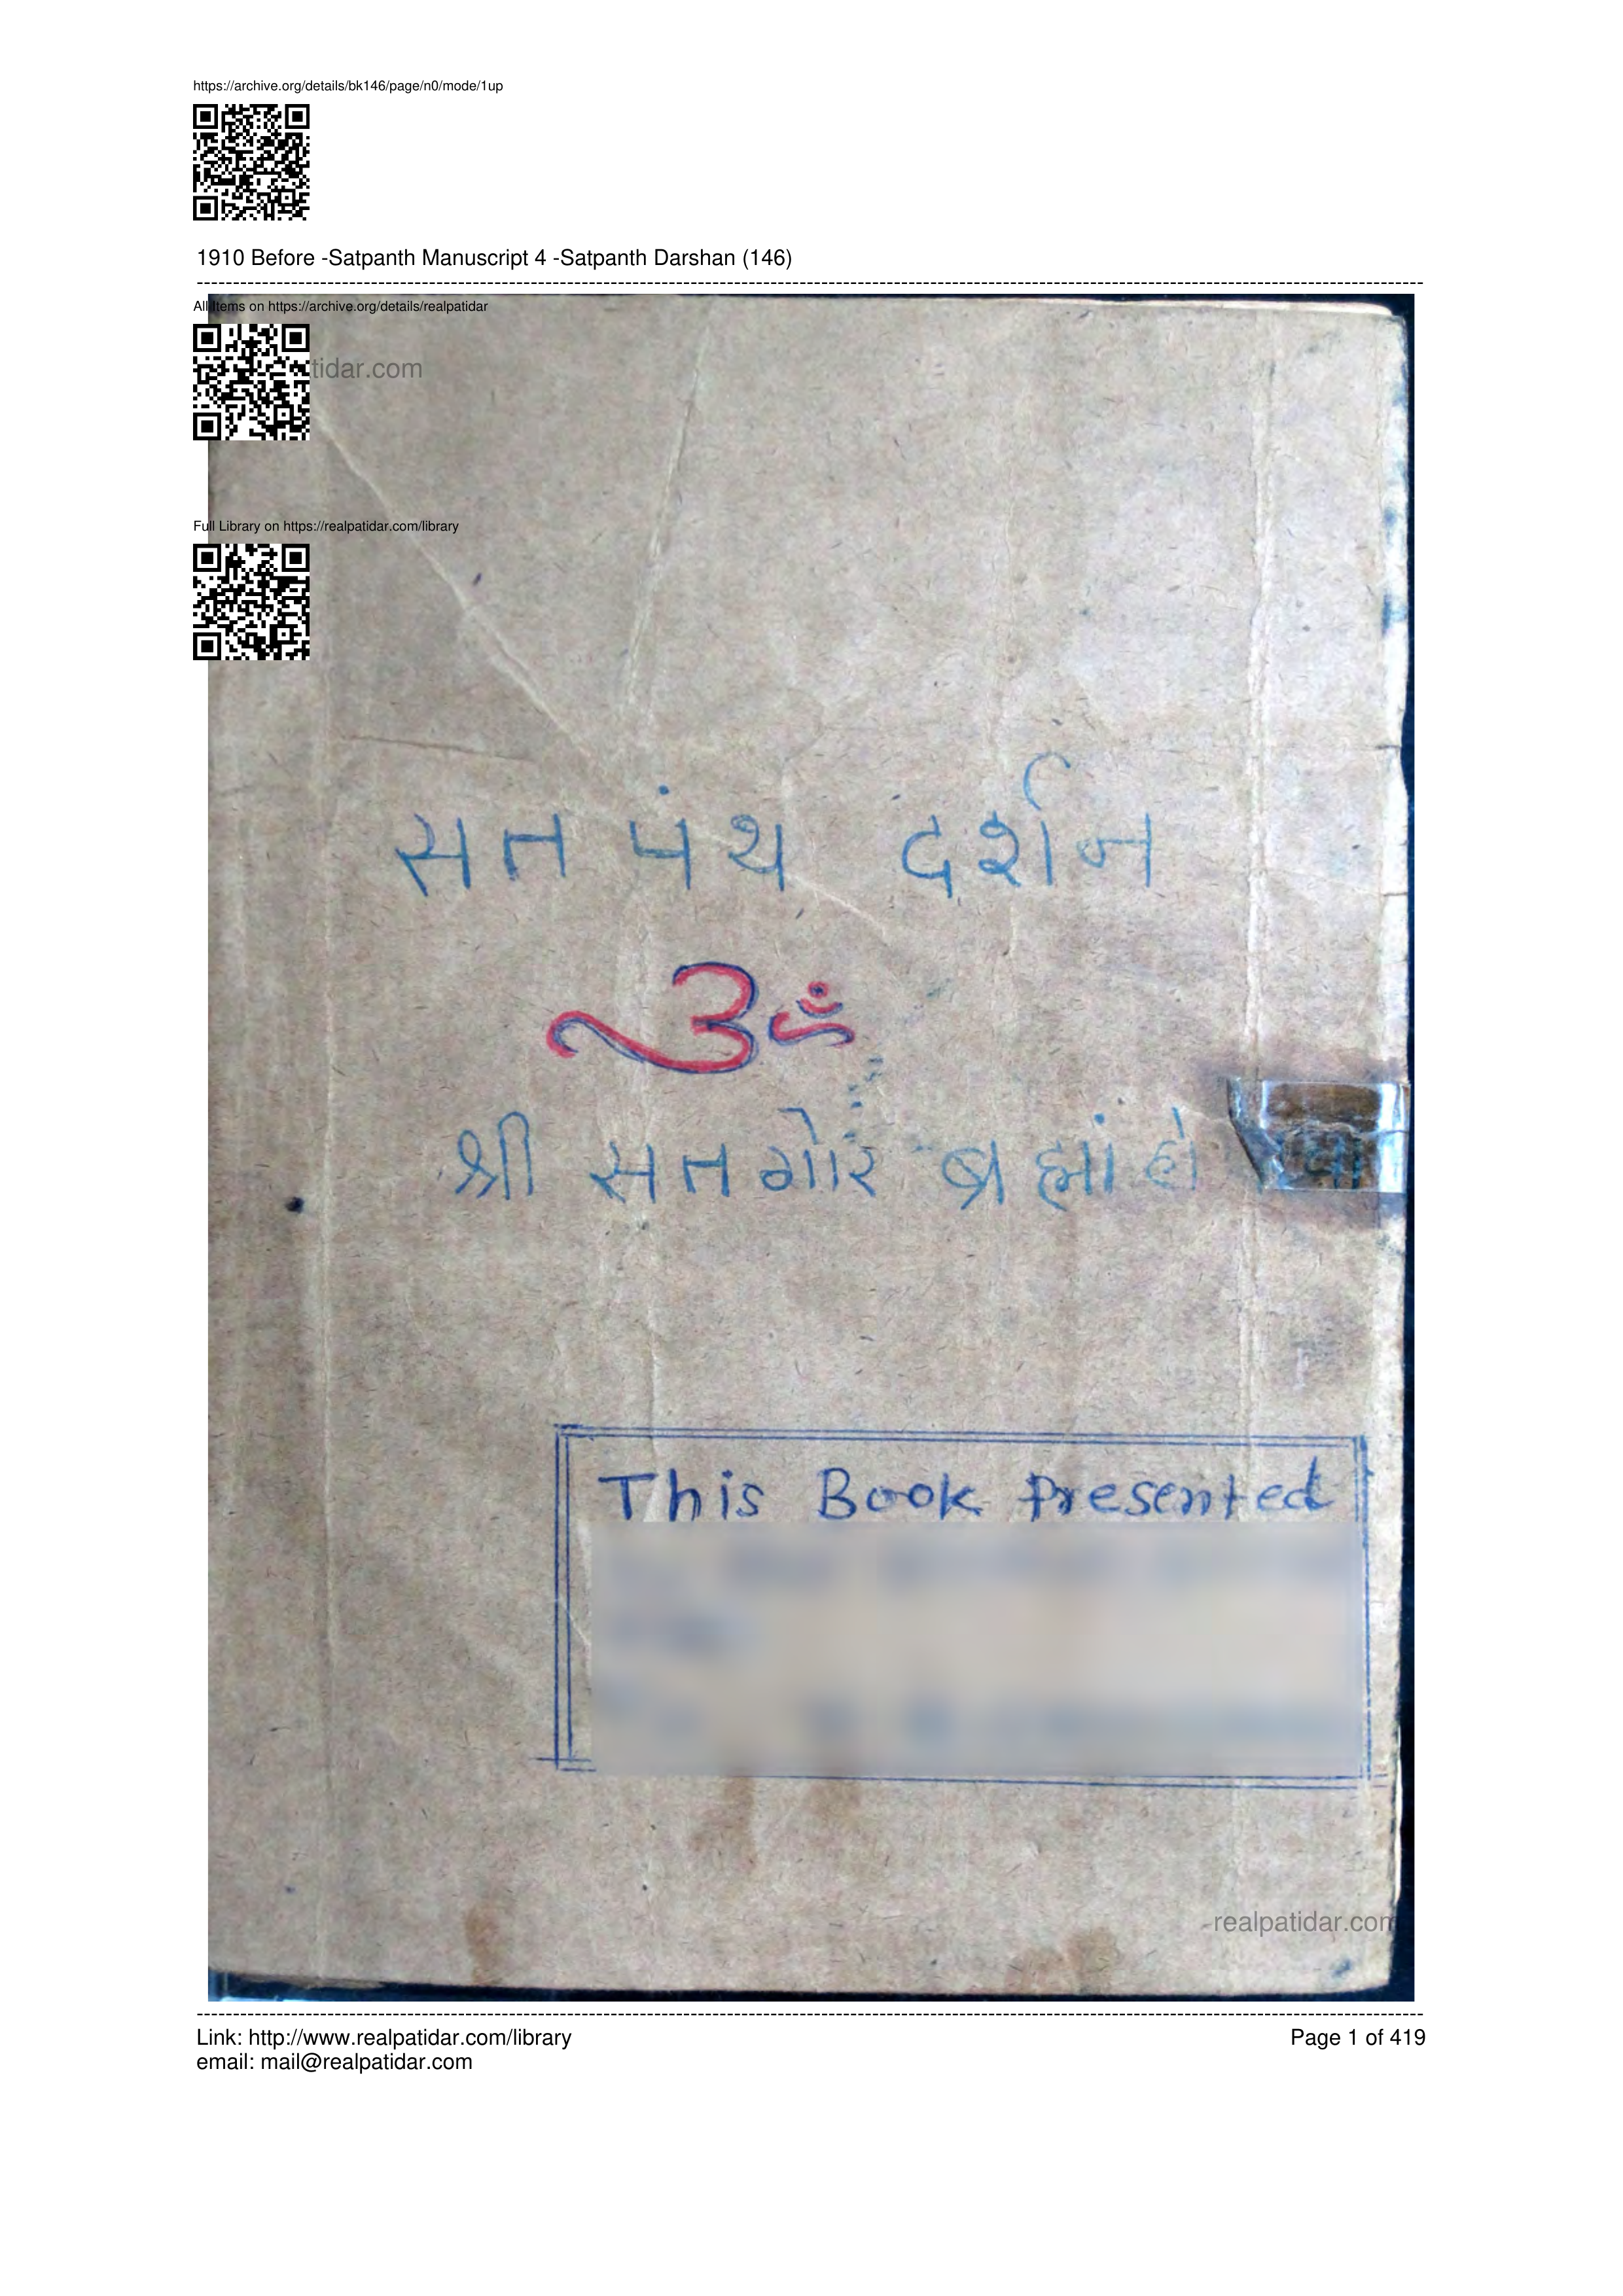 https://archive.org/details/bk146/page/n0/mode/1up
1910 Before -Satpanth Manuscript 4 -Satpanth Darshan (146)
All Items on https://archive.org/details/realpatidar
tidar.com
Full Library on https://realpatidar.com/library
सत पंथ दर्शन
ॐ
श्री सतगोर ब्रह्मां
This Book Presented
realpatidar.com
Link: http://www.realpatidar.com/library
Page 1 of 419
email: mail@realpatidar.com